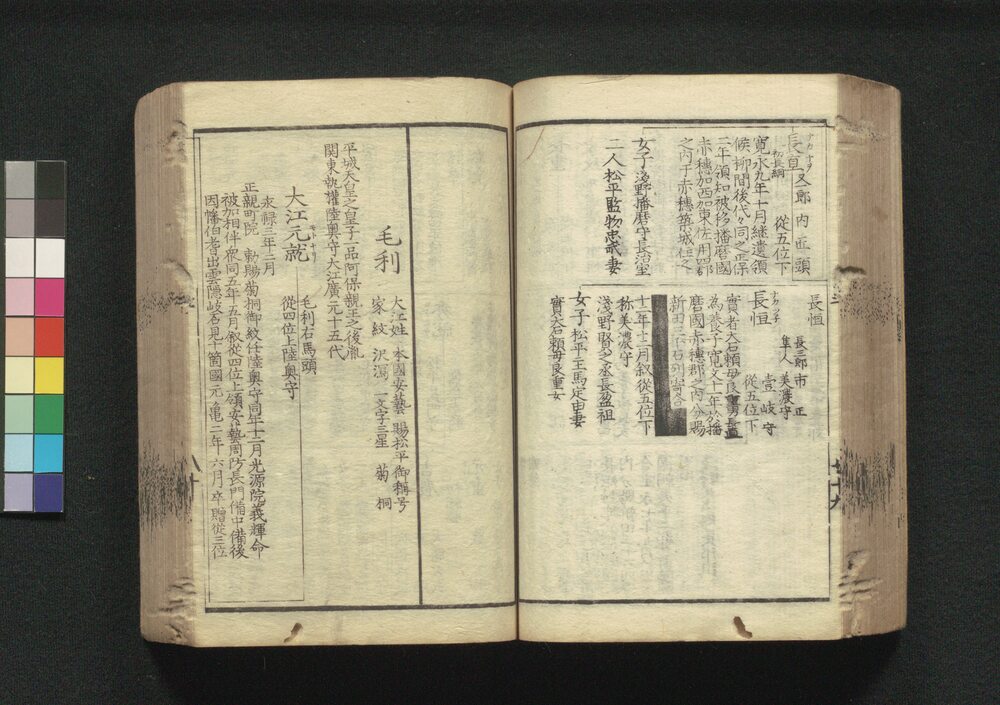 長直 又八郎 内匠頭
ナカナヲ
初長綱 從五位下
寛永九年十月継遺領
候柳間後代々同之正保
二年領知被移播磨國
赤穂加西加東佐用四郡
之内于赤穂築城住之
女子 浅野播磨守長治室
二人 松平監物忠武妻
長恒
長三郎 市正
隼人 美濃守
壹岐守
長恒 從五位下
ナカツネ
實者大石頼母良重男長直
為養子寛文十一年於播
磨國赤穂郡之内分賜
新田三千石列寄合
十二年十二月叙從五位下
称美濃守
浅野賢之丞長盈祖
女子 松平主馬定由妻
實大石頼母良重女
七十九
毛利
大江姓 本國安藝 賜松平御稱号
家紋 沢瀉 一文字三星 菊 桐
平城天皇之皇子一品阿保親王之後胤
関東執權陸奥守大江廣元十五代
毛利右馬頭
大江元就 從四位上陸奥守
モトナリ
永禄三年二月
正親町院 勅賜菊桐御紋任陸奥守同年十二月光源院義輝命
被加相伴衆同五年五月叙從四位上領安藝周防長門備中備後
因幡伯耆出雲隠岐石見十箇國元亀二年六月卒贈從三位